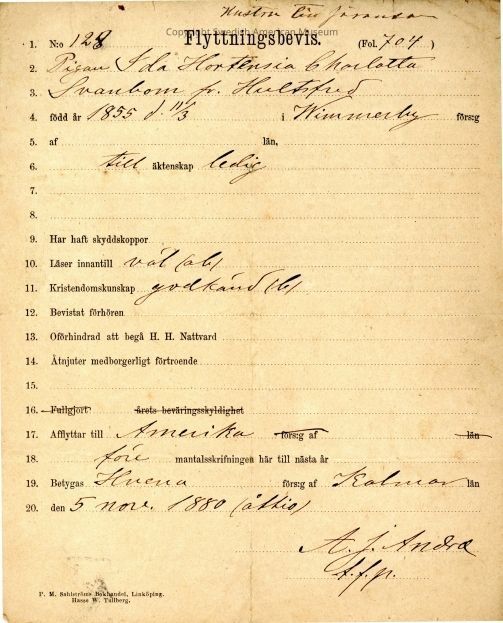 Hustru till
Copyright Swedish American Museum
Flyttningsbevis.
1. N:o 128 (Fol. 704)
2. Pigan Ida Hortensia Charlotta
3. Svanbom fr. Hultsfred
4. född år 1855 d. 11/3 i Wimmerby förs:g
5. af län,
6. till äktenskap ledig
7.
8.
9. Har haft skyddskoppor
10. Läser innantill väl (ab)
11. Kristendomskunskap godkänd (b)
12. Bevistat förhören
13. Oförhindrad att begå H. H. Nattvard
14. Åtnjuter medborgerligt förtroende
15.
16. Fullgjort årets beväringsskyldighet
17. Afflyttar till Amerika förs:g af län
18. före mantalsskrifningen här till nästa år
19. Betygas Hvena förs:g af Kalmar län
20. den 5 nov. 1880 (åttio)
A. J. André
t.f.p.
P. M. Sahlströms Bokhandel, Linköping.
Hasse W. Tullberg.